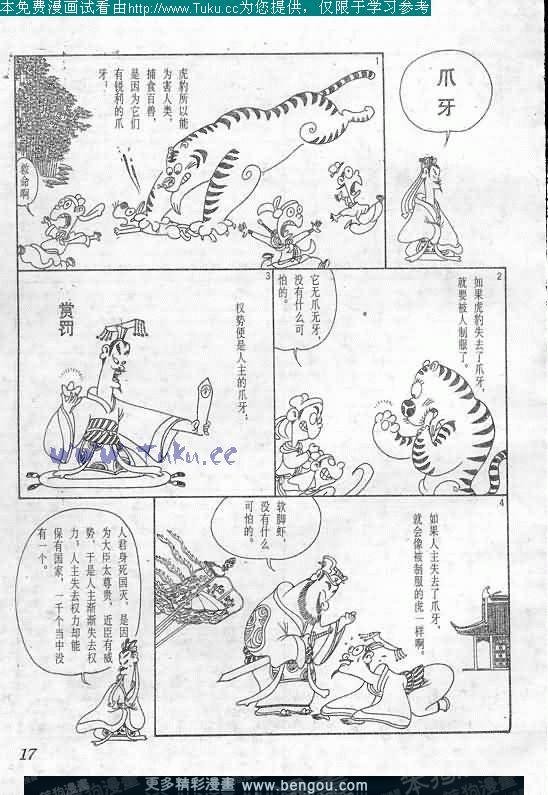 本免费漫画试看由http://www.Tuku.cc为您提供，仅限于学习参考
爪
牙
1
虎豹所以能
为害人类，
捕食百兽，
是因为它们
有锐利的爪
牙！
救命啊！
2
如果虎豹失去了爪牙，
就要被人制服了。
它无爪无牙，
没有什么可
怕的。
3
权势便是人主的爪牙；
赏罚
www.Tuku.cc
4
如果人主失去了爪牙，
就会像被制服的虎一样啊。
软脚虾，
没有什么
可怕的。
人君身死国灭，是因
为大臣太尊贵，近臣有威
势，于是人主渐渐失去权
力，人主失去权力却能
保有国家，一千个当中没
有一个。
17
笨狗漫畫
更多精彩漫畫 www.bengou.com
笨狗漫畫